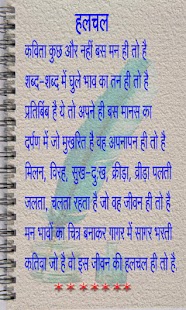 हलचल
कविता कुछ और नहीं बस मन ही तो है
शब्द-शब्द में घुले भाव का तन ही तो है
प्रतिबिंब है ये तो अपने ही बस मानस का
दर्पण में जो मुखरित है वह अपनापन ही तो है
मिलन, विरह, सुख-दुःख, क्रीड़ा, व्रीड़ा पलती
जलता, चलता रहता है जो वह जीवन ही तो है
मन भावों का चित्र बनाकर गागर में सागर भरती
कविता जो है वो इस जीवन की हलचल ही तो है.